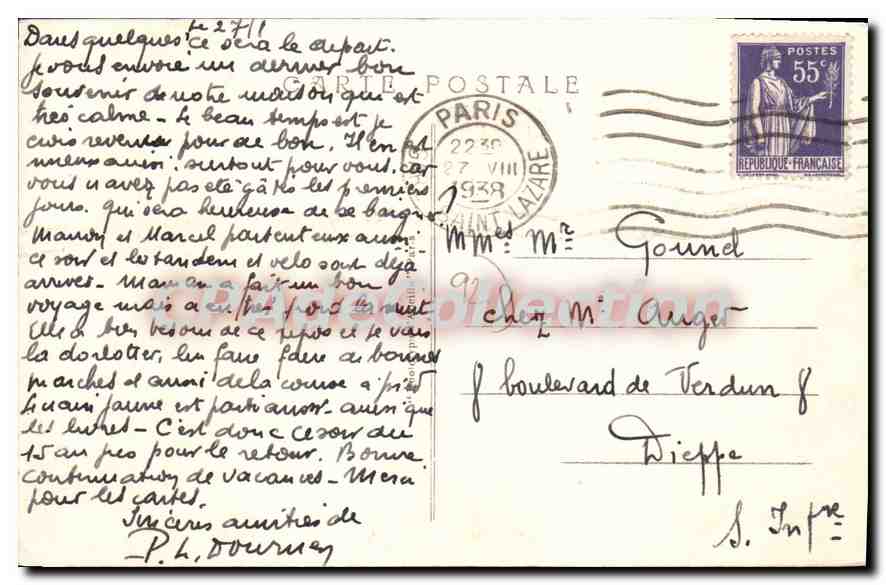 le 27/1
Dans quelques ce sera le depart.
je vous envoie un dernier bon
souvenir de notre maison qui est
très calme - le beau temps est je
crois revenu pour de bon. Il en est
mieux ainsi surtout pour vous, car
vous n'avez pas été gâtés les premiers
jours. qui sera heureuse de se baigner
Manon et Marcel partent eux aussi
ce soir et les tandem et velo sont déjà
arrivés - Maman a fait un bon
voyage mais a
Elle a bien besoin de ce repos et je vais
la dorlotter, lui faire faire de bonnes
marches et aussi de la course à pied
Le nain jaune est parti aussi - ainsi que
les livres - C'est donc ce soir du
15 au pour le retour. Bonne
continuation de vacances - Merci
pour les cartes.
Sincères amitiés de
P. L. Dournen
CARTE POSTALE
PARIS
22 30
27 VIII
1938
SAINT LAZARE
POSTES
55c
REPUBLIQUE FRANÇAISE
M Mes Mr Gound
92
chez Mr Auger
8 boulevard de Verdun 8
Dieppe
S. Infre